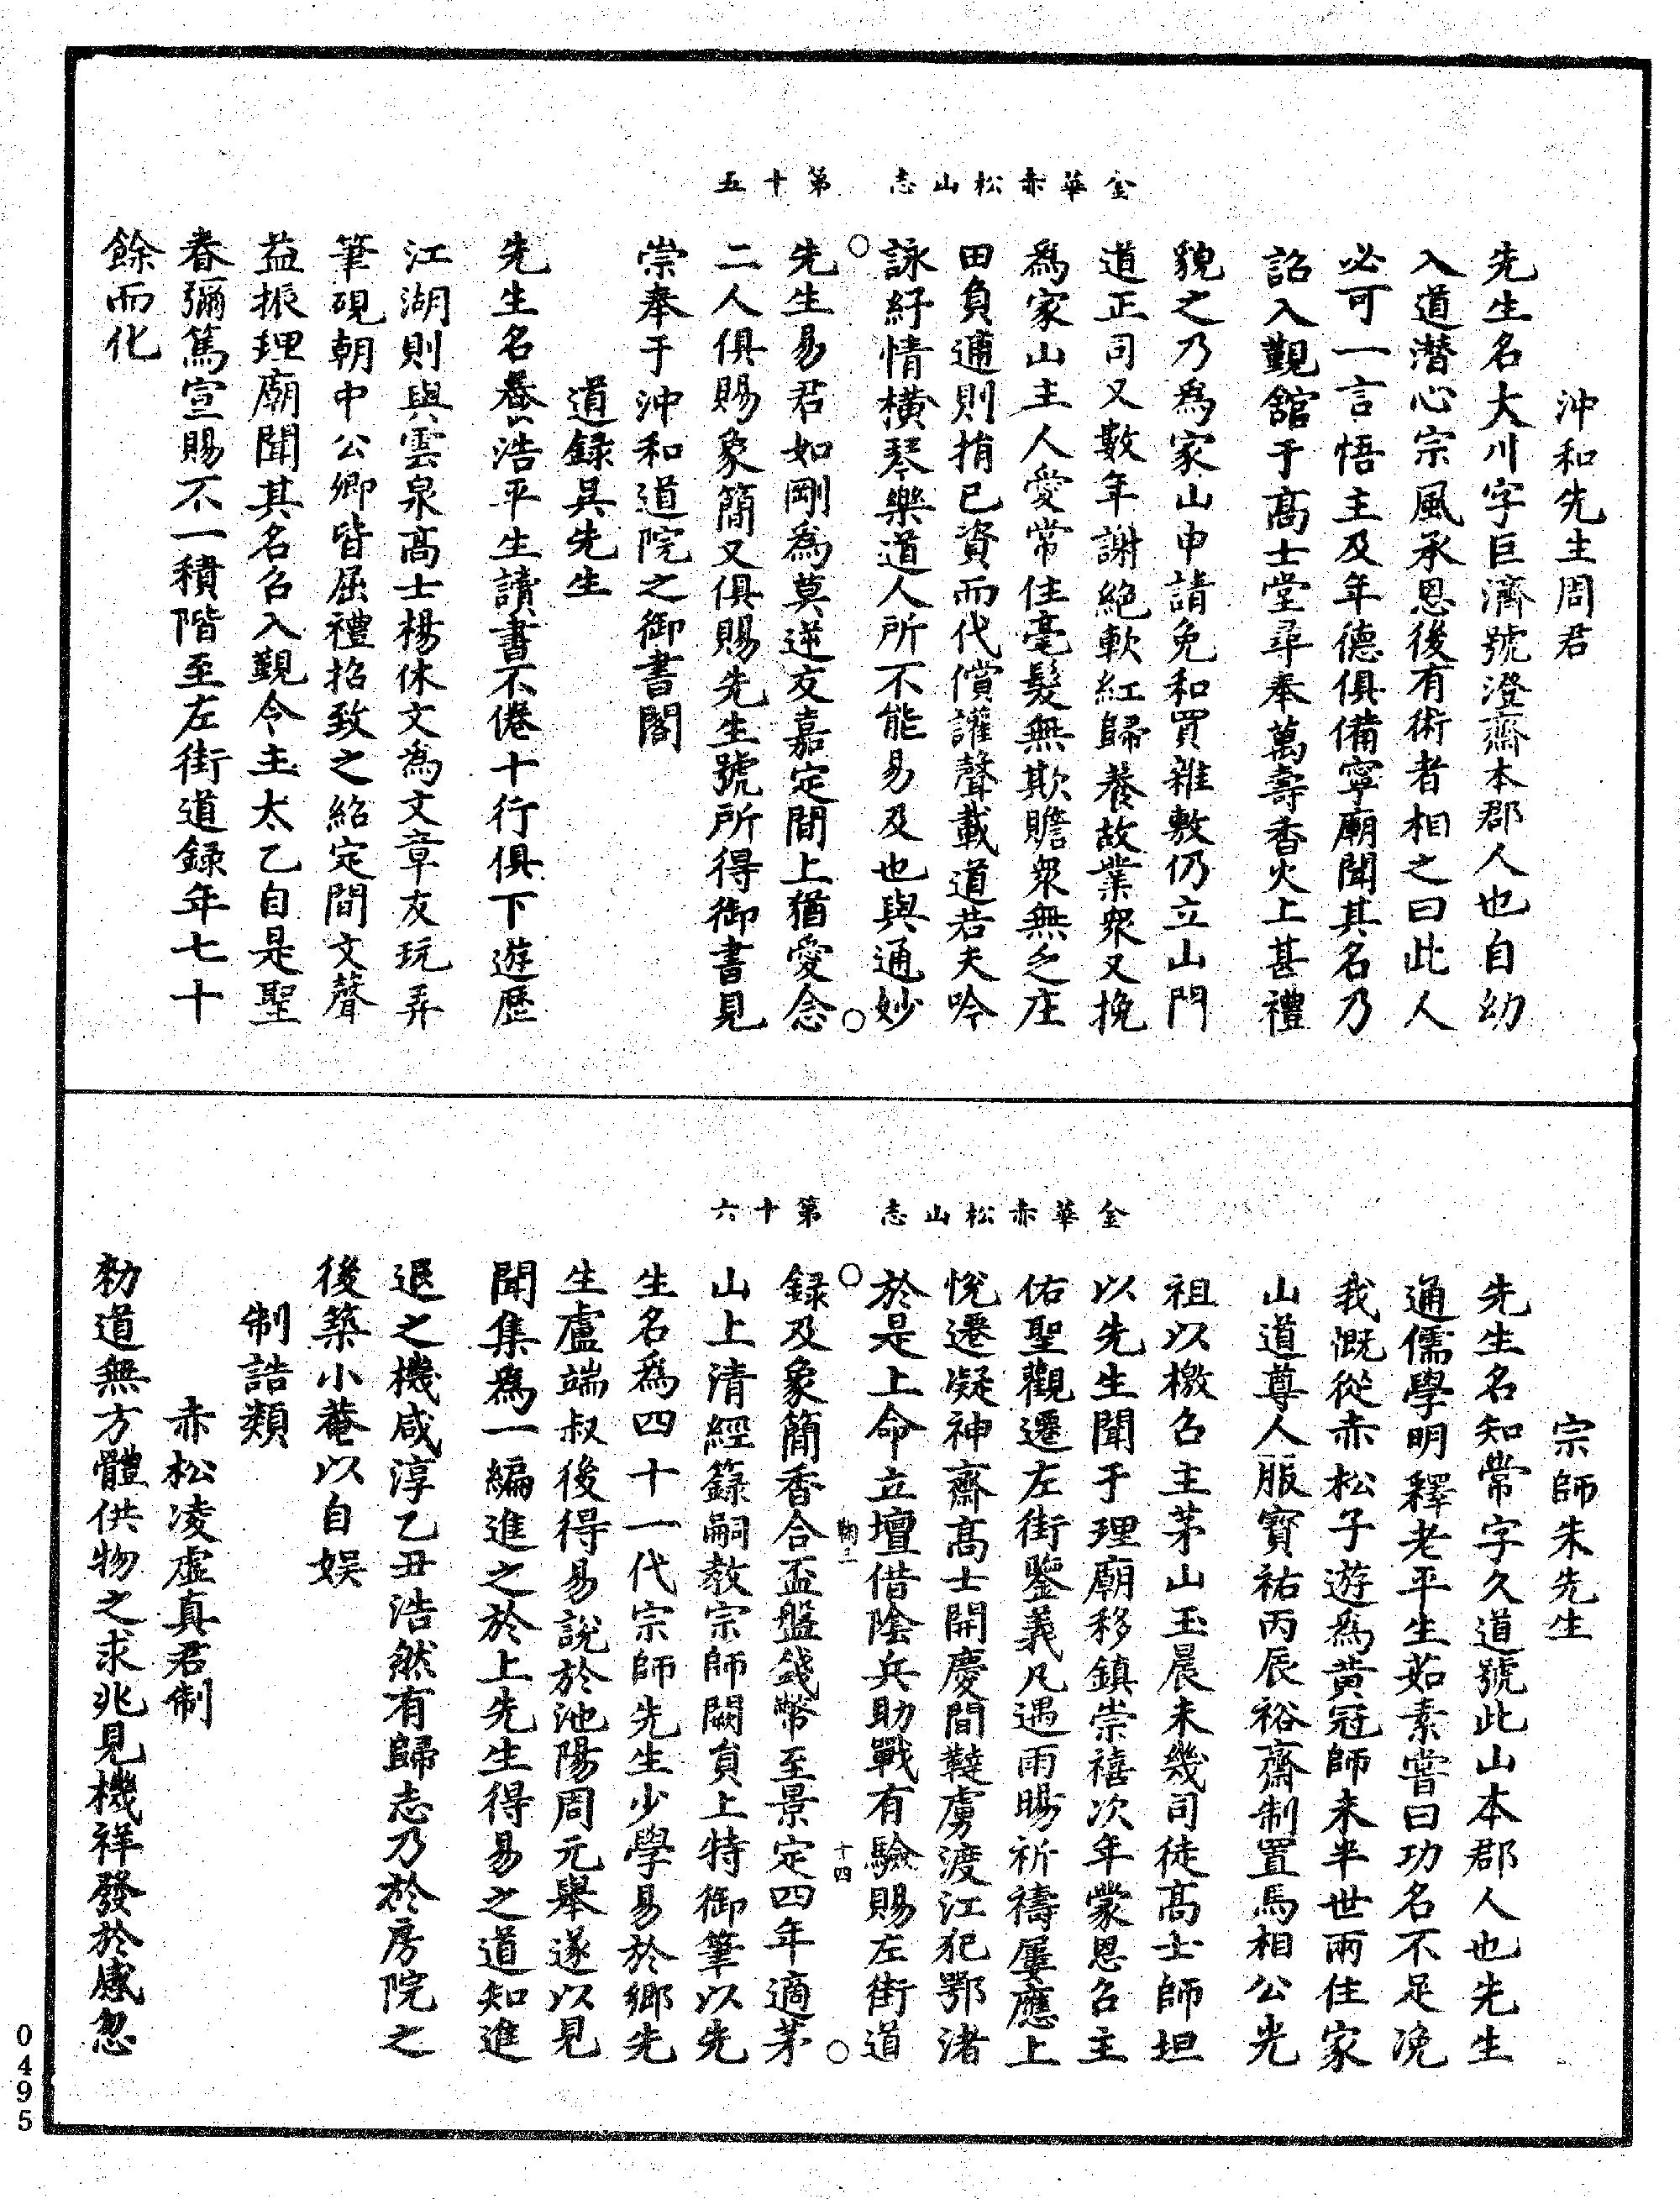 金華赤松山志　第十五
沖和先生周君
先生名大川字巨濟號澄齋本郡人也自幼
入道潛心宗風承恩後有術者相之曰此人
必可一言悟主及年德俱備寧廟聞其名乃
詔入覲舘于髙士堂尋奉萬壽香火上甚禮
貌之乃爲家山申請免和買雜敷仍立山門
道正司又數年謝絕軟紅歸養故業衆又挽
爲家山主人愛常住毫髮無欺贍衆無乏庄
田負逋則捐已資而代償讙聲載道若夫吟
詠紓情橫琴樂道人所不能易及也與通妙
先生易君如剛爲莫逆友嘉定間上猶愛念
二人俱賜象簡又俱賜先生號所得御書見
崇奉于沖和道院之御書閣
道録吳先生
先生名養浩平生讀書不倦十行俱下遊歷
江湖則與雲泉髙士楊休文為文章友玩弄
筆硯朝中公卿皆屈禮招致之紹定間文聲
益振理廟聞其名召入覲令主太乙自是聖
眷彌篤宣賜不一積階至左街道録年七十
餘而化
金華赤松山志　第十六
宗師朱先生
先生名知常字久道號此山本郡人也先生
通儒學明釋老平生茹素嘗曰功名不足浼
我溉從赤松子遊爲黃冠師未半世兩住家
山道尊人服寳祐丙辰裕齋制置馬相公光
祖以檄召主茅山玉晨未幾司徒髙士師坦
以先生聞于理廟移鎮崇禧次年蒙恩召主
佑聖觀遷左街鑒義凡遇雨暘祈禱屢應上
悅遷凝神齋髙士開慶間韃虜渡江犯鄂渚
於是上命立壇借陰兵助戰有驗賜左街道
録及象簡香合盃盤錢幣至景定四年適茅
山上清經籙嗣教宗師闕負上特御筆以先
生名爲四十一代宗師先生少學易於鄉先
生盧端叔後得易說於池陽周元舉遂以見
聞集爲一編進之於上先生得易之道知進
退之機咸淳乙丑浩然有歸志乃於房院之
後築小菴以自娛
制誥類
赤松凌虛真君制
勑道無方體供物之求兆見機祥發於感忽
十四
0495